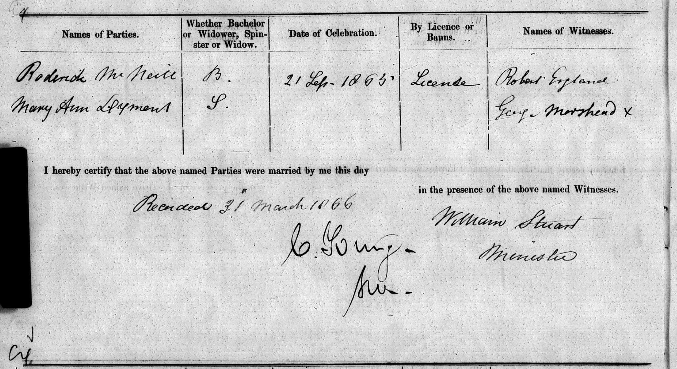 Names of Parties.
Whether Bachelor or Widower, Spinster or Widow.
Date of Celebration.
By Licence or Banns.
Names of Witnesses.
Roderick McNeill B. 21 Sep. 1865 License Robert England
Mary Ann Layment S. Geo. Morshead x
I hereby certify that the above named Parties were married by me this day
in the presence of the above named Witnesses.
Recorded 31st March 1866
William Stuart
Minister
C. Young